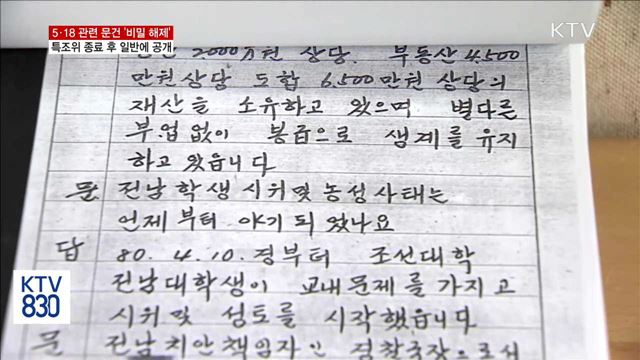 5·18 관련 문건 '비밀 해제'
특조위 종료 후 일반에 공개
KTV
2000만원 상당. 부동산 4,500
만원상당 도합 6,500만원 상당의
재산을 소유하고 있으며 별다른
부업없이 봉급으로 생계를 유지
하고 있읍니다
문 전남학생 시위및 농성사태는
언제부터 야기 되었나요
답 80. 4. 10. 경부터 조선대학
전남대학생이 교내문제를 가지고
시위및 성토를 시작했읍니다
문 전남치안책임자인 경찰국장으로서
KTV
830